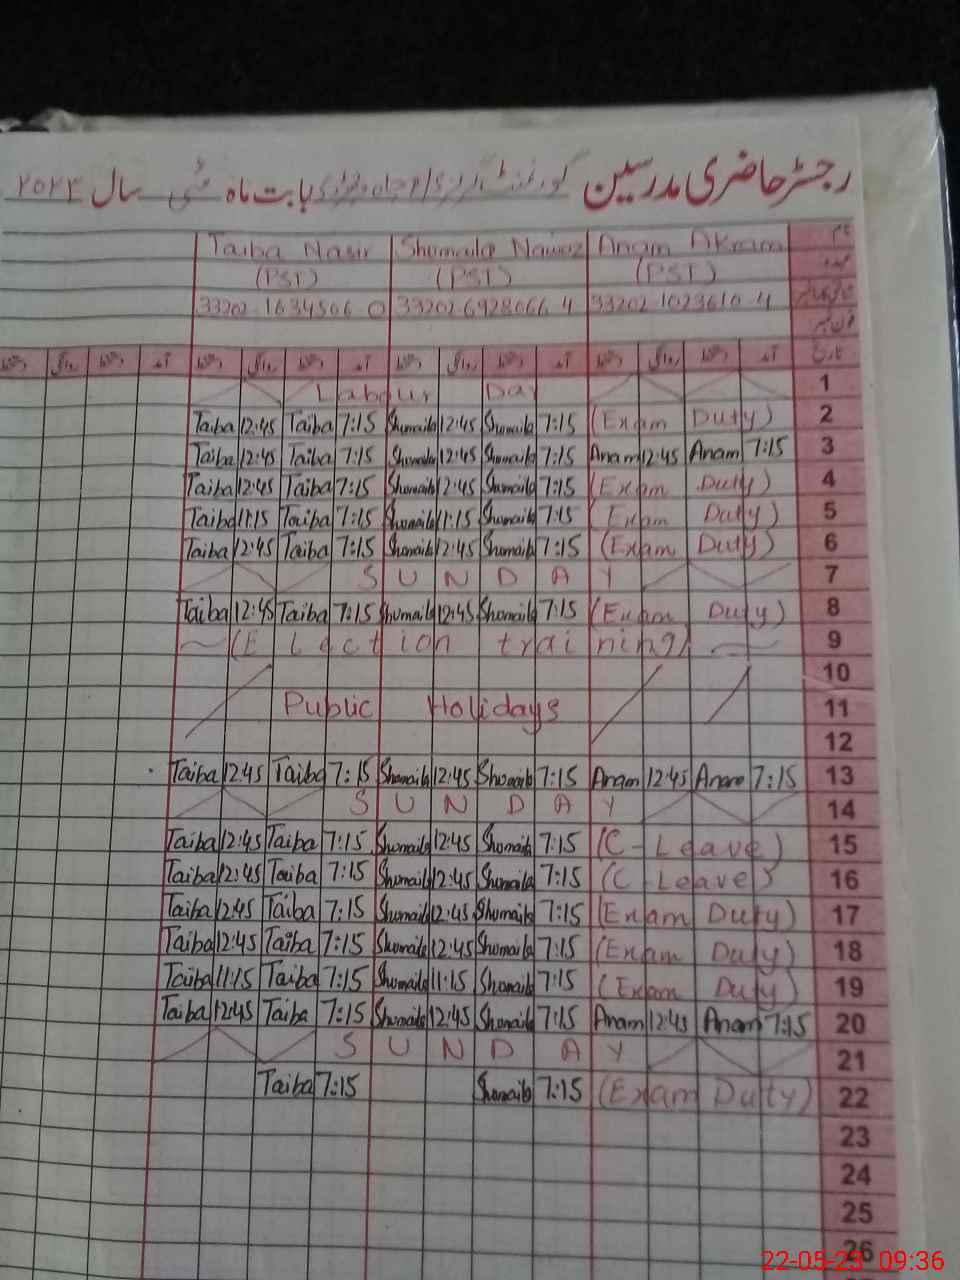 رجسٹر حاضری مدرسین گورنمنٹ بابت ماہ مئی سال ۲۰۲۳
Taiba Nasir Shumaila Nawaz Anam Akram نام
(PST) (PST) (PST) عہدہ
33202-1634506 0 33202-6928066 4 33202-1023610-4
فون نمبر
دستخط روانگی دستخط آمد دستخط روانگی دستخط آمد دستخط روانگی دستخط آمد دستخط روانگی دستخط آمد تاریخ
Labour Day 1
Taiba 12:45 Taiba 7:15 Shumaila 12:45 Shumaila 7:15 (Exam Duty) 2
Taiba 12:45 Taiba 7:15 Shumaila 12:45 Shumaila 7:15 Anam 12:45 Anam 7:15 3
Taiba 12:45 Taiba 7:15 Shumaila 12:45 Shumaila 7:15 (Exam Duty) 4
Taiba 11:15 Taiba 7:15 Shumaila 11:15 Shumaila 7:15 (Exam Duty) 5
Taiba 12:45 Taiba 7:15 Shumaila 12:45 Shumaila 7:15 (Exam Duty) 6
SUNDAY 7
Taiba 12:45 Taiba 7:15 Shumaila 12:45 Shumaila 7:15 (Exam Duty) 8
(Election training) 9
10
Public Holidays 11
12
Taiba 12:45 Taiba 7:15 Shumaila 12:45 Shumaila 7:15 Anam 12:45 Anam 7:15 13
SUNDAY 14
Taiba 12:45 Taiba 7:15 Shumaila 12:45 Shumaila 7:15 (C-Leave) 15
Taiba 12:45 Taiba 7:15 Shumaila 12:45 Shumaila 7:15 (C-Leave) 16
Taiba 12:45 Taiba 7:15 Shumaila 12:45 Shumaila 7:15 (Exam Duty) 17
Taiba 12:45 Taiba 7:15 Shumaila 12:45 Shumaila 7:15 (Exam Duty) 18
Taiba 11:15 Taiba 7:15 Shumaila 11:15 Shumaila 7:15 (Exam Duty) 19
Taiba 12:45 Taiba 7:15 Shumaila 12:45 Shumaila 7:15 Anam 12:45 Anam 7:15 20
SUNDAY 21
Taiba 7:15 Shumaila 7:15 (Exam Duty) 22
23
24
25
26
22-05-23 09:36